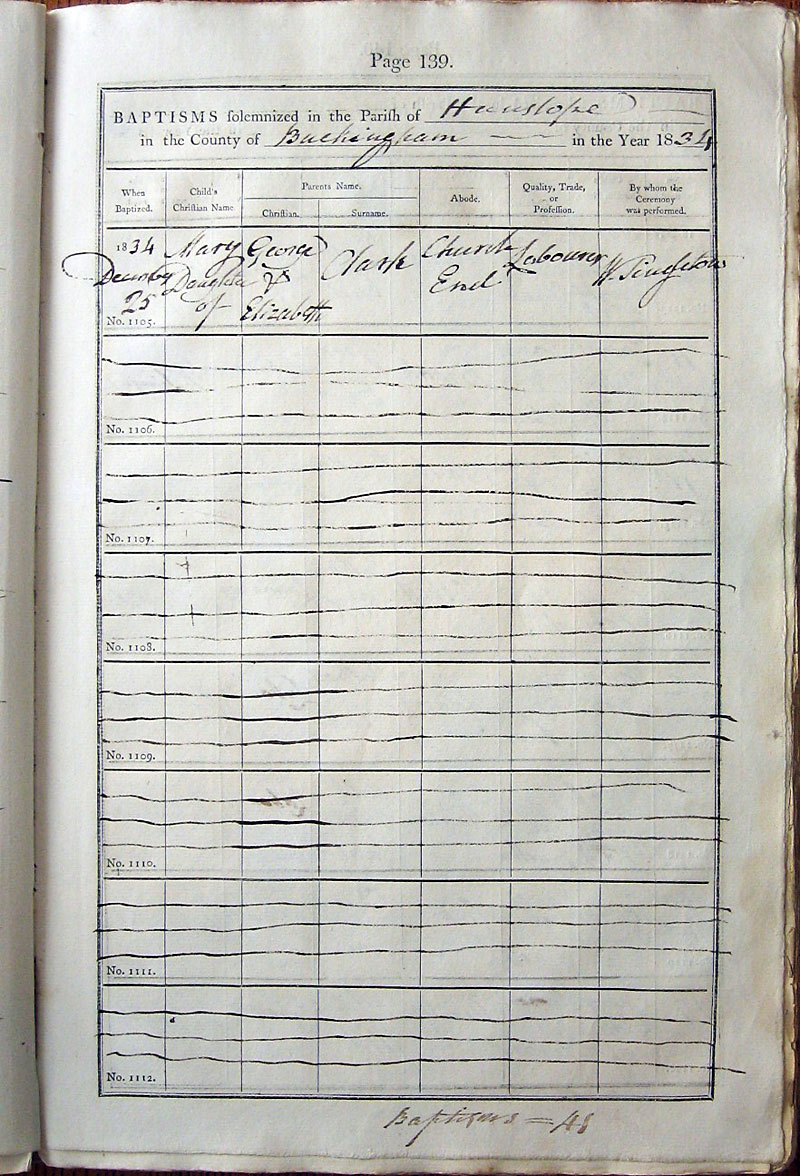 Page 139.
BAPTISMS solemnized in the Parish of Hanslope
in the County of Buckingham in the Year 1834
When Baptized. Child's Christian Name. Parents Name. Christian. Surname. Abode. Quality, Trade, or Profession. By whom the Ceremony was performed.
1834 Mary George Clark Church Labourer W. Singleton
Decembr Daughter & End
25 of Elizabeth
No. 1105.
No. 1106.
No. 1107.
No. 1108.
No. 1109.
No. 1110.
No. 1111.
No. 1112.
Baptisms = 48